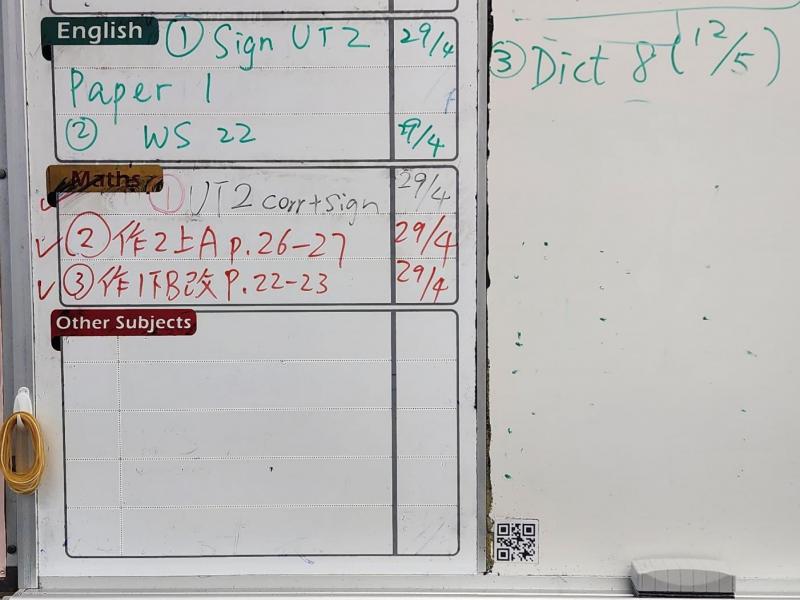 English ① Sign UT2 29/4
Paper 1
② WS 22 29/4
Maths ① UT2 corr+sign 29/4
② 作2上A p.26-27 29/4
③ 作1下B改 P.22-23 29/4
Other Subjects
③ Dict 8 (12/5)